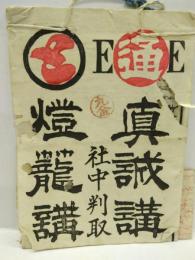 E通E
九金
真誠講
社中判取
燈籠講